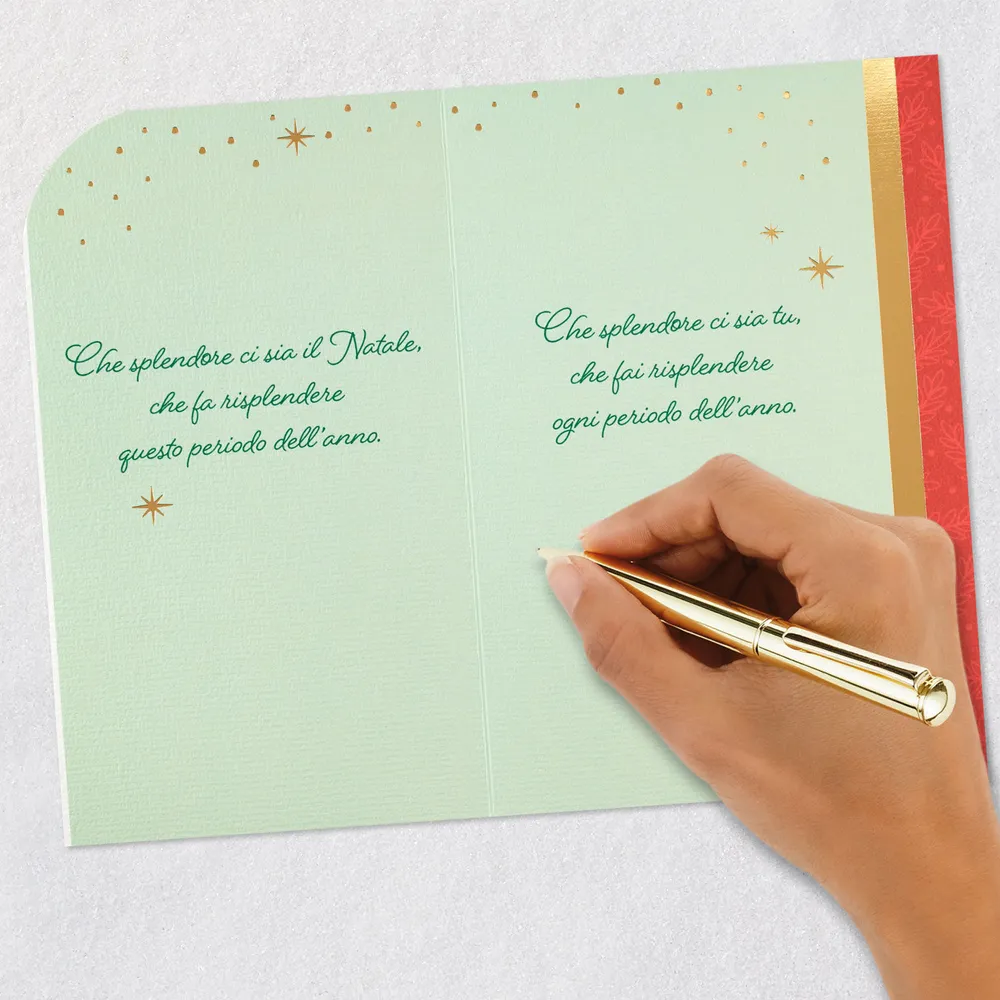 Che splendore ci sia il Natale,
che fa risplendere
questo periodo dell'anno.
Che splendore ci sia tu,
che fai risplendere
ogni periodo dell'anno.